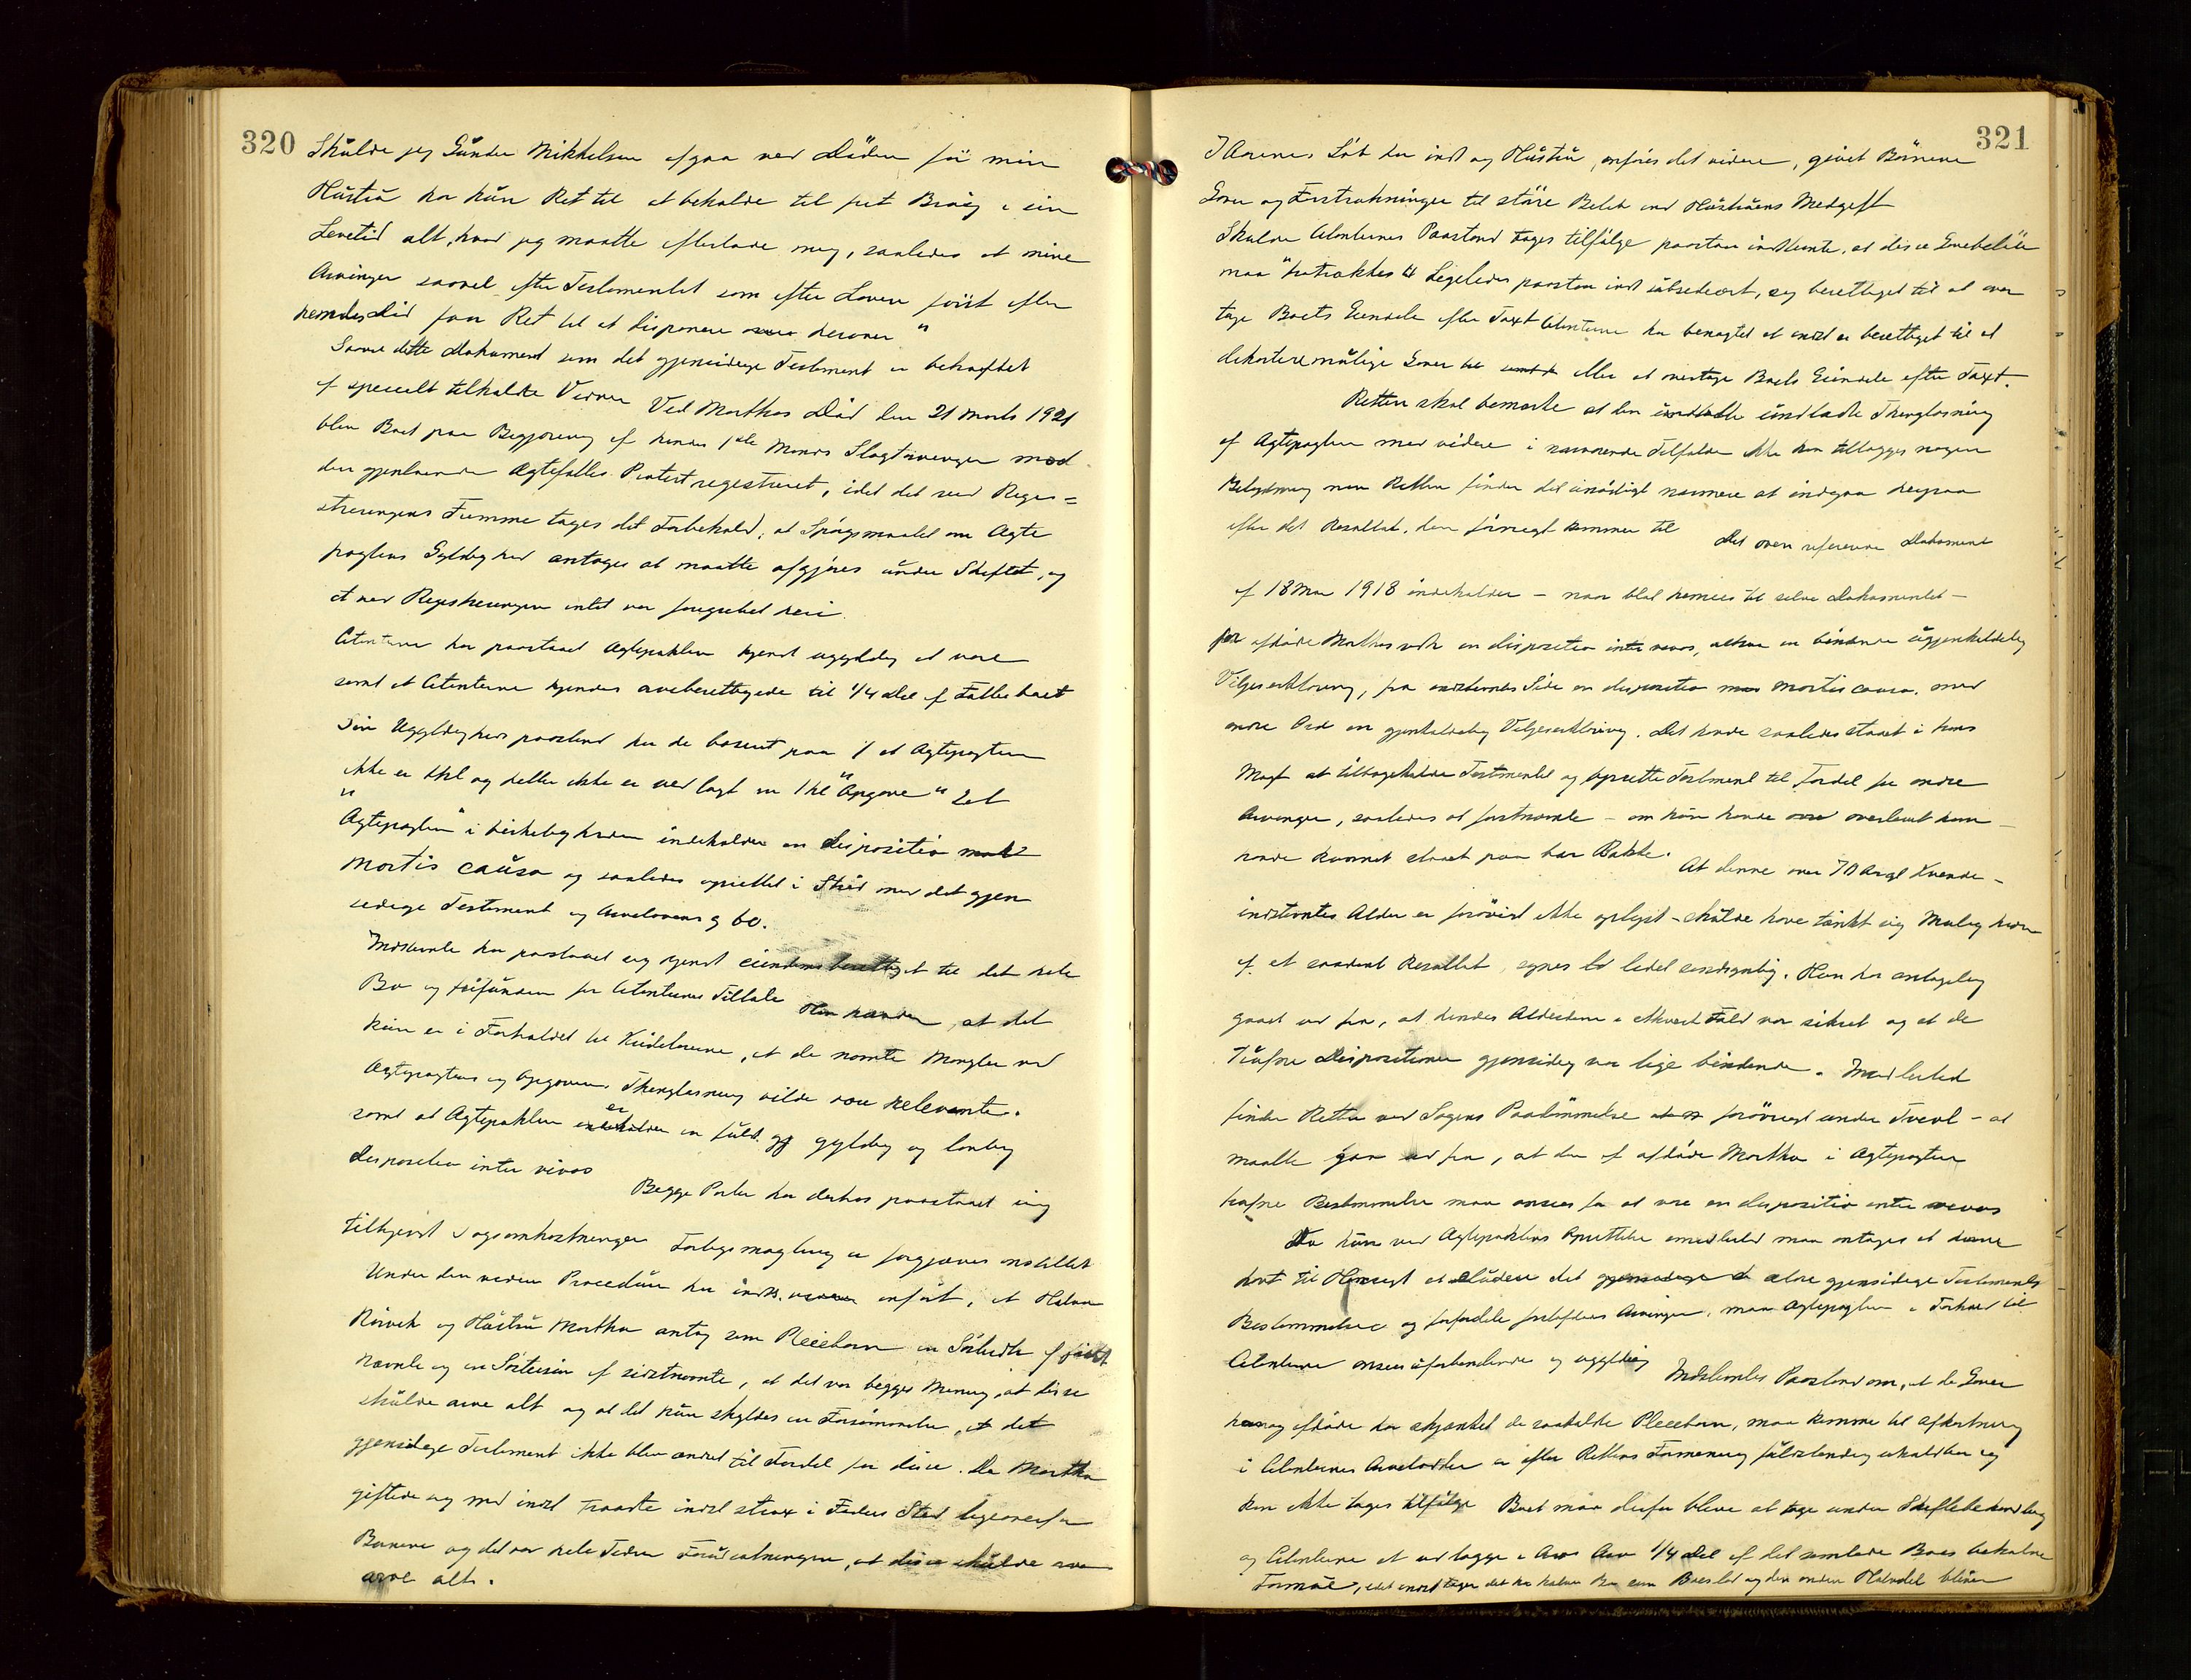 320
Skulde jeg Gunder Mikkelsen afgaa ved Döden för min
Hustru har hun Ret til at beholde til frit Brug i sin
Levetid alt, hvad jeg maatte efterlade mig, saaledes at mine
Arvinger saavel efter Testamentet som efter Loven först efter
hendes Död faar Ret til at disponere herover"
Saavel dette Dokument som det gjensidige Testament er bekræftet
af specielt tilkaldte Vidner Ved Marthas Död den 21 Marts 1921
blev Boet paa Begjæring af hendes 1ste Mands Slagtarvinger mod
den gjenlevende Ægtefælles Protest registreret, idet det ved Regi-
streringens Fremme tages det Forbehold, at Spörgsmaalet om Ægte
pagtens Gyldighed antages at maatte afgjöres under Skiftet, og
at ved Registreringen intet var foregrebet heri.
Citanterne har paastaaet Ægtepakten kjendt ugyldig at være
samt at Citanterne kjendes arveberettigede til 1/4 Del af Fællesboet
Sin Ugyldighedspaastand har de baseret paa 1/ at Ægtepagten
ikke er thl og heller ikke er vedlagt en thl "Opgave" 2et
"Ægtepagten" i virkeligheden indeholder en disposition
mortis causa og saaledes oprettet i Strid med det gjen
sidige Testament og Arvelovens § 60.
Indstevnte har paastaaet sig kjendt eiendomsberettiget til det hele
Bo og frifunden for Citanternes Tiltale Han hævder, at det
kun er i Forholdet til Kreditorerne, at de nævnte Mangler ved
Ægtepagtens og Opgavens Thinglæsning vilde være relevante.
samt at Ægtepakten er en fuldt gyldig og lovlig
disposition inter vivos
Begge Parter har derhos paastaaet sig
tilkjendt Sagsomkostninger Forligsmægling er forgjæves anstillet
Under den videre Procedüre har indst. anfört, at Halvor
Rörvik og Hustru Martha antog som Pleiebörn en Söstersön af först
nævnte og en Söstersön af sidstnævnte, at det var begges Mening, at disse
skulde arve alt og at det kun skyldes en Forsömmelse, at det
gjensidige Testament ikke blev ændret til Fordel for disse. Da Martha
giftede sig med indst traadte indst strax i Faders Sted ligeoverfor
Börnene og det var hele Tiden Forudsætningen, at disse skulde
arve alt.
321
I Aarenes Löb har indst og Hustru, anföres det videre, givet Börnene
Gaver og Forstrækninger til större Belöb end Hustruens Medgift
Skulde Citanternes Paastand tages tilfölge paastaar indstevnte, at disse Gavebelöb
maa fratrækkes Ligeledes paastaar indst subsidiært, sig berettiget til at over
tage Boets Eiendele efter Taxt Citanterne har benægtet at indst er berettiget til at
dekortere mulige Gaver eller at overtage Boets Eiendele efter Taxt.
Retten skal bemærke at den undladte Thinglæsning
af Ægtepagten med videre i nærværende Tilfælde ikke kan tillægges nogen
Betydning men Retten finder det unödigt nærmere at indgaa herpaa
efter det Resultat, den förövrigt kommer til Det oven refererede Dokument
af 18 Mai 1918 indeholder – naar blot henses til selve Dokumentet –
for afdöde Marthas vedk en disposition inter vivos, altsaa en bindende ugjenkaldelig
Viljeserklæring, fra indstevntes Side en disposition mortis causa, med
andre Ord en gjenkaldelig Viljeserklæring. Det havde saaledes staaet i hans
Magt at tilbagekalde Testamentet og oprette Testament til Fordel for andre
Arvinger, saaledes at förstnævnte – om hun havde overlevet ham –
havde kommet staaet paa bar Bakke. At denne over 70 Aargl Kvinde –
indstevntes Alder er forövrigt ikke oplyst – skulde have tænkt sig Muligheden
af et saadant Resultat, synes lidet sandsynlig. Hun har antagelig
gaaet ud fra, at hendes Alderdom i ethvert Fald var sikret og at de
trufne Dispositioner gjensidig var lige bindende. Imidlertid
finder Retten ved Sagens Paadömmelse – forövrigt under Tvivl – at
maatte gaa ud fra, at den af afdöde Martha i Ægtepagten
trufne Bestemmelse maa ansees for at være en disposition inter vivos
Da hun ved Ægtepaktens Oprettelse imidlertid maa antages at have
havt til Hensigt at eludere det ældre gjensidige Testaments
Bestemmelser og forfordele Arvinger, maa Ægtepagten i Forhold til
Citanterne ansees uforbindende og ugyldig Indstevntes Paastand om, at de Gaver
han og afdöde har skjænket de saakaldte Pleiebörn, maa komme til afkortning
i Citanternes Arvelodder er efter Rettens Formening fuldstændig uholdbar og
kan ikke tages tilfölge Boet maa derfor blive at tage under Skiftebehandling
og Citanterne at udlægge i Arv 1/4 Del af det samlede Boes beholdne
Formue, idet indst tager det ha halve Bo som Boeslod og den anden Halvdel bliver